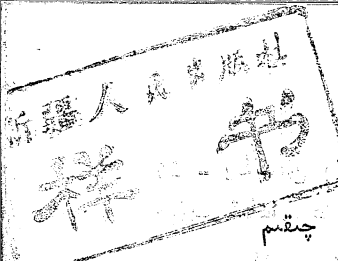 新疆人民出版社
样书
چىقىم